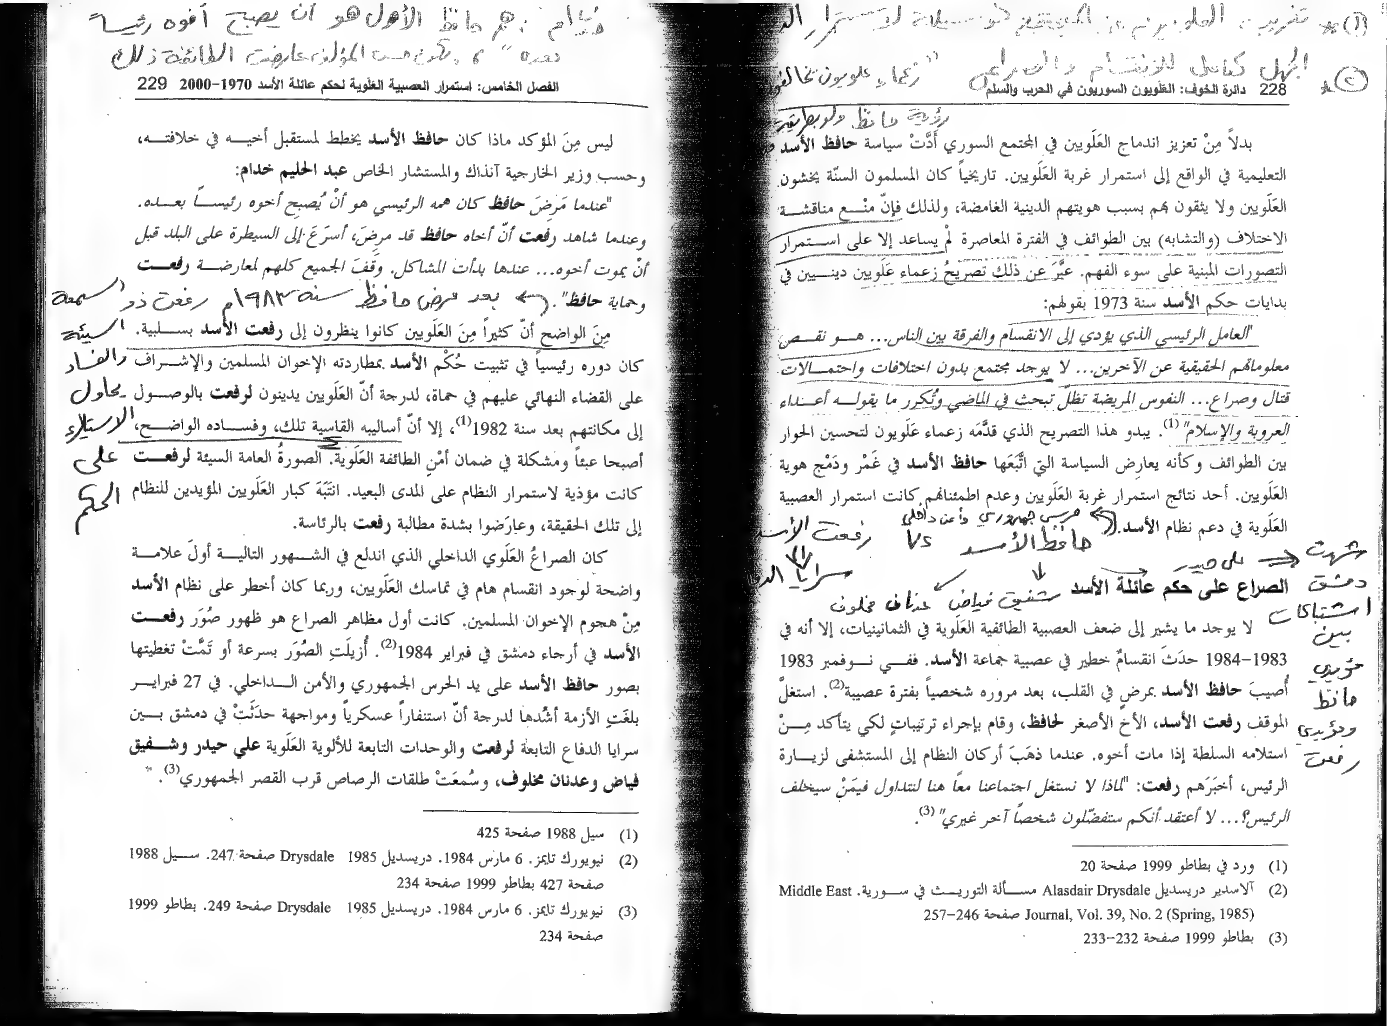 228 دائرة الخوف: العَلَويون السوريون في الحرب والسلم
بدلاً مِنْ تعزيز اندماج العَلَويين في المجتمع السوري أدَّتْ سياسة حافظ الأسد
التعليمية في الواقع إلى استمرار غربة العَلَويين. تاريخياً كان المسلمون السنّة يخشون
العَلَويين ولا يثقون بهم بسبب هويتهم الدينية الغامضة، ولذلك فإنّ منْع مناقشة
الاختلاف (والتشابه) بين الطوائف في الفترة المعاصرة لْم يساعد إلا على استمرار
التصورات المبنية على سوء الفهم. عبَّرَ عن ذلك تصريحُ زعماء عَلَويين دينيين في
بدايات حكم الأسد سنة 1973 بقولهم:
"العامل الرئيسي الذي يؤدي إلى الانقسام والفرقة بين الناس... هو نقص
معلوماتهم الحقيقية عن الآخرين... لا يوجد مجتمع بدون اختلافات واحتمالات
قتال وصراع... النفوس المريضة تظلّ تبحث في الماضي وتُكرر ما يقوله أعداء
العروبة والإسلام"(1). يبدو هذا التصريح الذي قدَّمَه زعماء عَلَويون لتحسين الحوار
بين الطوائف وكأنه يعارِض السياسة التي اتَّبَعَها حافظ الأسد في غَمْر ودَمْج هوية
العَلَويين. أحد نتائج استمرار غربة العَلَويين وعدم اطمئنانهم كانت استمرار العصبية
العَلَوية في دعم نظام الأسد.
حرس جمهوري وأمن داخلي
حافظ الأسد VS رفعت الأسد
سرايا
علي حيدر
شفيق فياض عدنان مخلوف
شهدت
دمشق
اشتباكات
بين
مؤيدي
حافظ
ومؤيدي
رفعت
الصراع على حكم عائلة الأسد
لا يوجد ما يشير إلى ضعف العصبية الطائفية العَلَوية في الثمانينيات، إلا أنه في
1983–1984 حدَثَ انقسامٌ خطير في عصبية جماعة الأسد. ففي نوفمبر 1983
أُصيبَ حافظ الأسد بمرضٍ في القلب، بعد مروره شخصياً بفترة عصيبة(2). استغلَّ
الموقف رفعت الأسد، الأخ الأصغر لحافظ، وقام بإجراء ترتيباتٍ لكي يتأكد مِنْ
استلامه السلطة إذا مات أخوه. عندما ذهَبَ أركان النظام إلى المستشفى لزيارة
الرئيس، أخبَرَهم رفعت: "لماذا لا نستغل اجتماعنا معاً هنا لنتداول فيمَنْ سيخلف
الرئيس؟... لا أعتقد أنكم ستفضّلون شخصاً آخر غيري"(3).
(1) ورد في بطاطو 1999 صفحة 20
(2) آلاسدير دريسديل Alasdair Drysdale مسألة التوريث في سورية. Middle East
Journal, Vol. 39, No. 2 (Spring, 1985) صفحة 246–257
(3) بطاطو 1999 صفحة 232–233
هم حافظ الأول هو أن يصبح أخوه رئيساً
بعده"
الفصل الخامس: استمرار العصبية العَلَوية لحكم عائلة الأسد 1970–2000 229
ليس مِنَ المؤكد ماذا كان حافظ الأسد يخطط لمستقبل أخيه في خلافته،
وحسب وزير الخارجية آنذاك والمستشار الخاص عبد الحليم خدام:
"عندما مَرِضَ حافظ كان همه الرئيسي هو أنْ يُصبِح أخوه رئيساً بعده.
وعندما شاهد رفعت أنّ أخاه حافظ قد مرِضَ، أسرَعَ إلى السيطرة على البلد قبل
أنْ يموت أخوه... عندها بدأت المشاكل. وقفَ الجميع كلهم لمعارضة رفعت
وحماية حافظ".
بعد مرض حافظ سنة ١٩٨٣م رفعت ذو السمعة
السيئة
والفساد
يحاول
الاستيلاء
على
الحكم
مِنَ الواضح أنّ كثيراً مِنَ العَلَويين كانوا ينظرون إلى رفعت الأسد بسلبية.
كان دوره رئيسياً في تثبيت حُكْم الأسد بمطاردته الإخوان المسلمين والإشراف
على القضاء النهائي عليهم في حماة، لدرجة أنّ العَلَويين يدينون لرفعت بالوصول
إلى مكانتهم بعد سنة 1982(1)، إلا أنّ أساليبه القاسية تلك، وفساده الواضح،
أصبحا عبئاً ومشكلة في ضمان أمْن الطائفة العَلَوية. الصورةُ العامة السيئة لرفعت
كانت مؤذية لاستمرار النظام على المدى البعيد. انتَبَهَ كبار العَلَويين المؤيدين للنظام
إلى تلك الحقيقة، وعارَضوا بشدة مطالبة رفعت بالرئاسة.
كان الصراعُ العَلَوي الداخلي الذي اندلع في الشهور التالية أولَ علامة
واضحة لوجود انقسام هام في تماسك العَلَويين، وربما كان أخطر على نظام الأسد
مِنْ هجوم الإخوان المسلمين. كانت أول مظاهر الصراع هو ظهور صُوَر رفعت
الأسد في أرجاء دمشق في فبراير 1984(2). أُزيلَتِ الصُوَر بسرعة أو تَمَّتْ تغطيتها
بصور حافظ الأسد على يد الحرس الجمهوري والأمن الداخلي. في 27 فبراير
بلغَتِ الأزمة أشُدها لدرجة أنّ استنفاراً عسكرياً ومواجهة حدَثَتْ في دمشق بين
سرايا الدفاع التابعة لرفعت والوحدات التابعة للألوية العَلَوية علي حيدر وشفيق
فياض وعدنان مخلوف، وسُمعَتْ طلقات الرصاص قرب القصر الجمهوري(3).
(1) سيل 1988 صفحة 425
(2) نيويورك تايمز. 6 مارس 1984. دريسديل Drysdale 1985 صفحة 247. سيل 1988
صفحة 427 بطاطو 1999 صفحة 234
(3) نيويورك تايمز. 6 مارس 1984. دريسديل Drysdale 1985 صفحة 249. بطاطو 1999
صفحة 234